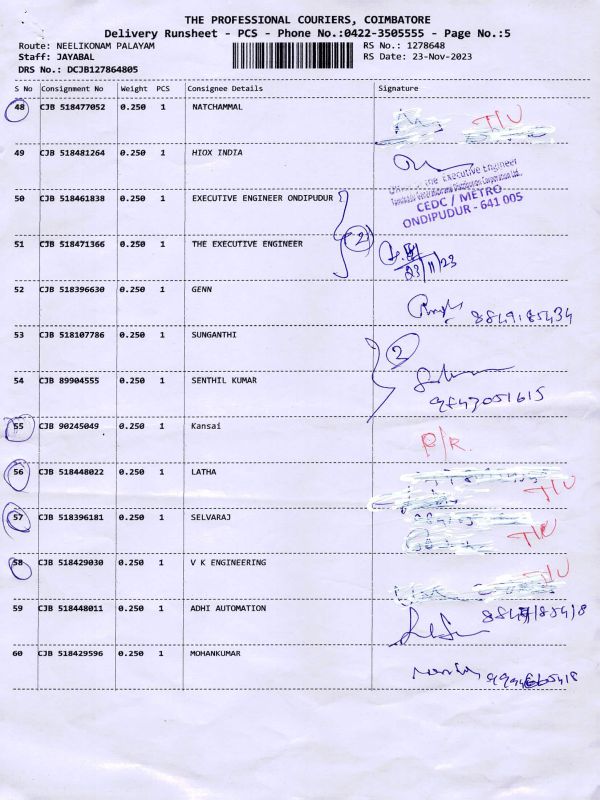 THE PROFESSIONAL COURIERS, COIMBATORE
Delivery Runsheet - PCS - Phone No.:0422-3505555 - Page No.:5
Route: NEELIKONAM PALAYAM
RS No.: 1278648
Staff: JAYABAL
RS Date: 23-Nov-2023
DRS No.: DCJB127864805
S No Consignment No Weight PCS Consignee Details Signature
48 CJB 518477052 0.250 1 NATCHAMMAL T/U
49 CJB 518481264 0.250 1 HIOX INDIA
Executive Engineer
CEDC / METRO
ONDIPUDUR - 641 005
50 CJB 518461838 0.250 1 EXECUTIVE ENGINEER ONDIPUDUR
2
51 CJB 518471366 0.250 1 THE EXECUTIVE ENGINEER
23/11/23
52 CJB 518396630 0.250 1 GENN
53 CJB 518107786 0.250 1 SUNGANTHI
2
54 CJB 89904555 0.250 1 SENTHIL KUMAR
55 CJB 90245049 0.250 1 Kansai
P/R.
56 CJB 518448022 0.250 1 LATHA
T/U
57 CJB 518396181 0.250 1 SELVARAJ
T/U
58 CJB 518429030 0.250 1 V K ENGINEERING
T/U
59 CJB 518448011 0.250 1 ADHI AUTOMATION
60 CJB 518429596 0.250 1 MOHANKUMAR